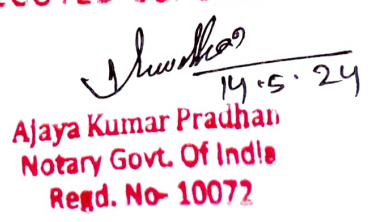 14.5.24
Ajaya Kumar Pradhan
Notary Govt. Of India
Regd. No- 10072